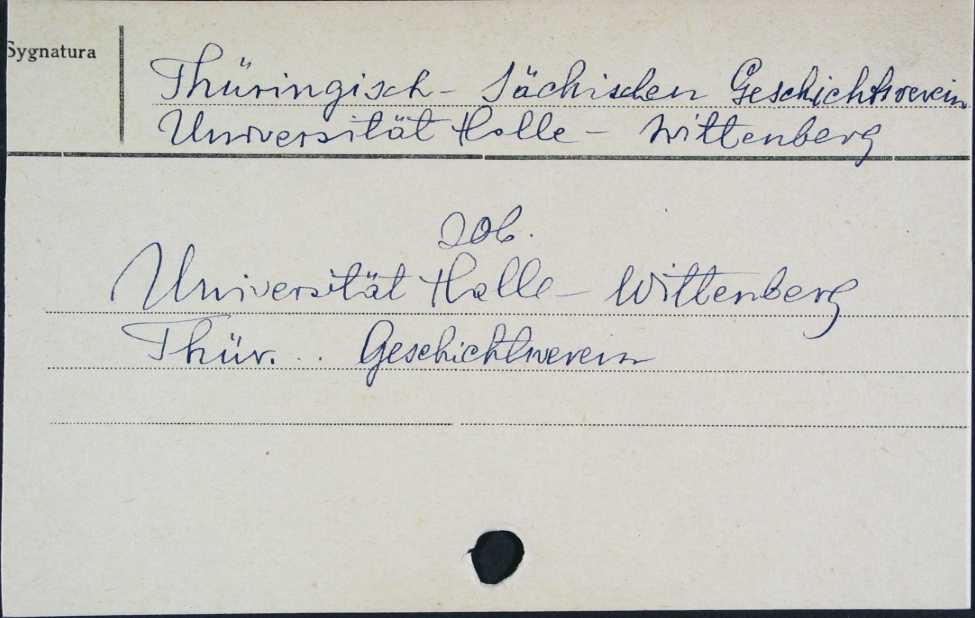 Sygnatura
Thüringisch - Sächischen Geschichtsverein
Universität Halle - Wittenberg
zob.
Universität Halle - Wittenberg
Thür. .. Geschichtsverein